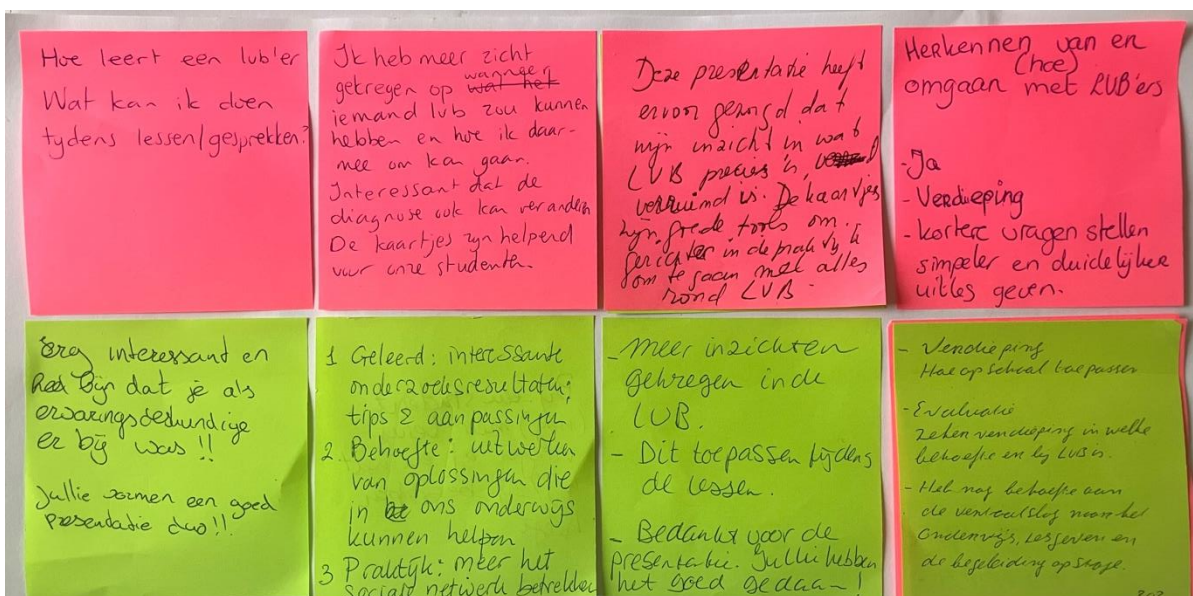 Hoe leert een lub'er
Wat kan ik doen
tijdens lessen/gesprekken?
Ik heb meer zicht
gekregen op wanneer
iemand lvb zou kunnen
hebben en hoe ik daar-
mee om kan gaan.
Interessant dat de
diagnose ook kan veranderen
De kaartjes zijn helpend
voor onze studenten.
Deze presentatie heeft
ervoor gezorgd dat
mijn inzicht in wat
LVB precies is,
verruimd is. De kaartjes
zijn goede tools om
gerichter in de praktijk
om te gaan met alles
rond LVB.
Herkennen van en
(hoe)
omgaan met LVB'ers
- Ja
- Verdieping
- kortere vragen stellen
simpeler en duidelijker
uitleg geven.
Erg interessant en
fijn dat je als
ervaringsdeskundige
er bij was !!
Jullie vormen een goed
presentatie duo!!
1 Geleerd: interessante
onderzoeksresultaten;
tips & aanpassingen
2. Behoefte: uitwerken
van oplossingen die
in ons onderwijs
kunnen helpen
3 Praktijk: meer het
sociale netwerk betrekken
- Meer inzichten
gekregen in de
LVB.
- Dit toepassen tijdens
de lessen.
- Bedankt voor de
presentatie. Jullie hebben
het goed gedaan!
- Verdieping
Hoe op school toepassen
- Evaluatie
Zeker verdieping in welke
behoefte er bij LVB is.
- Heb nog behoefte aan
de vertaalslag naar het
onderwijs, lesgeven en
de begeleiding op stage.